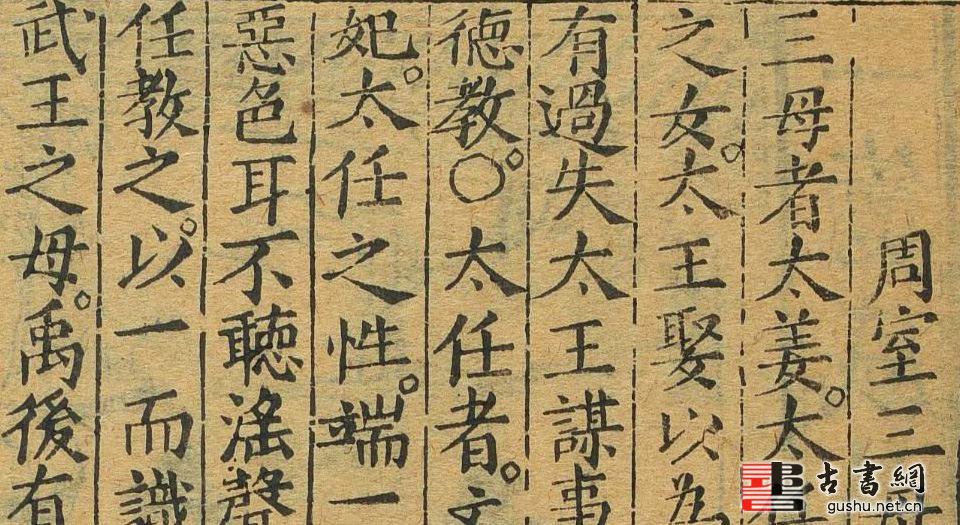 周室三
三母者太姜太
之女太王娶以為
有過失太王謀事
德教〇太任者文
妃太任之性端一
惡色耳不聽淫聲
任教之以一而識
武王之母禹後有
古書網
gushu.net.cn